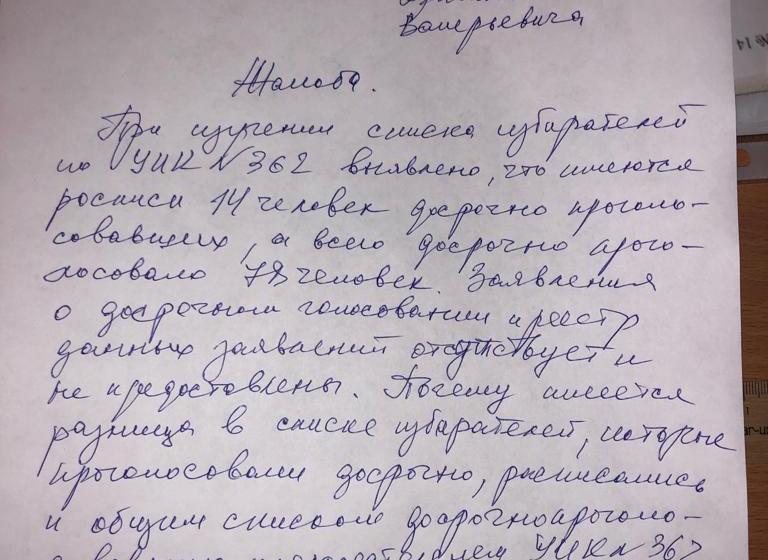 Валерьевича
Жалоба.
При изучении списка избирателей
по УИК №362 выявлено, что имеются
росписи 14 человек досрочно проголо-
совавших, а всего досрочно прого-
лосовало 78 человек. Заявления
о досрочном голосовании и реестр
данных заявлений отсутствует и
не предоставлены. Почему имеется
разница в списке избирателей, которые
проголосовали досрочно, расписались
и общим списком досрочнопроголо-
УИК №362
№ 14